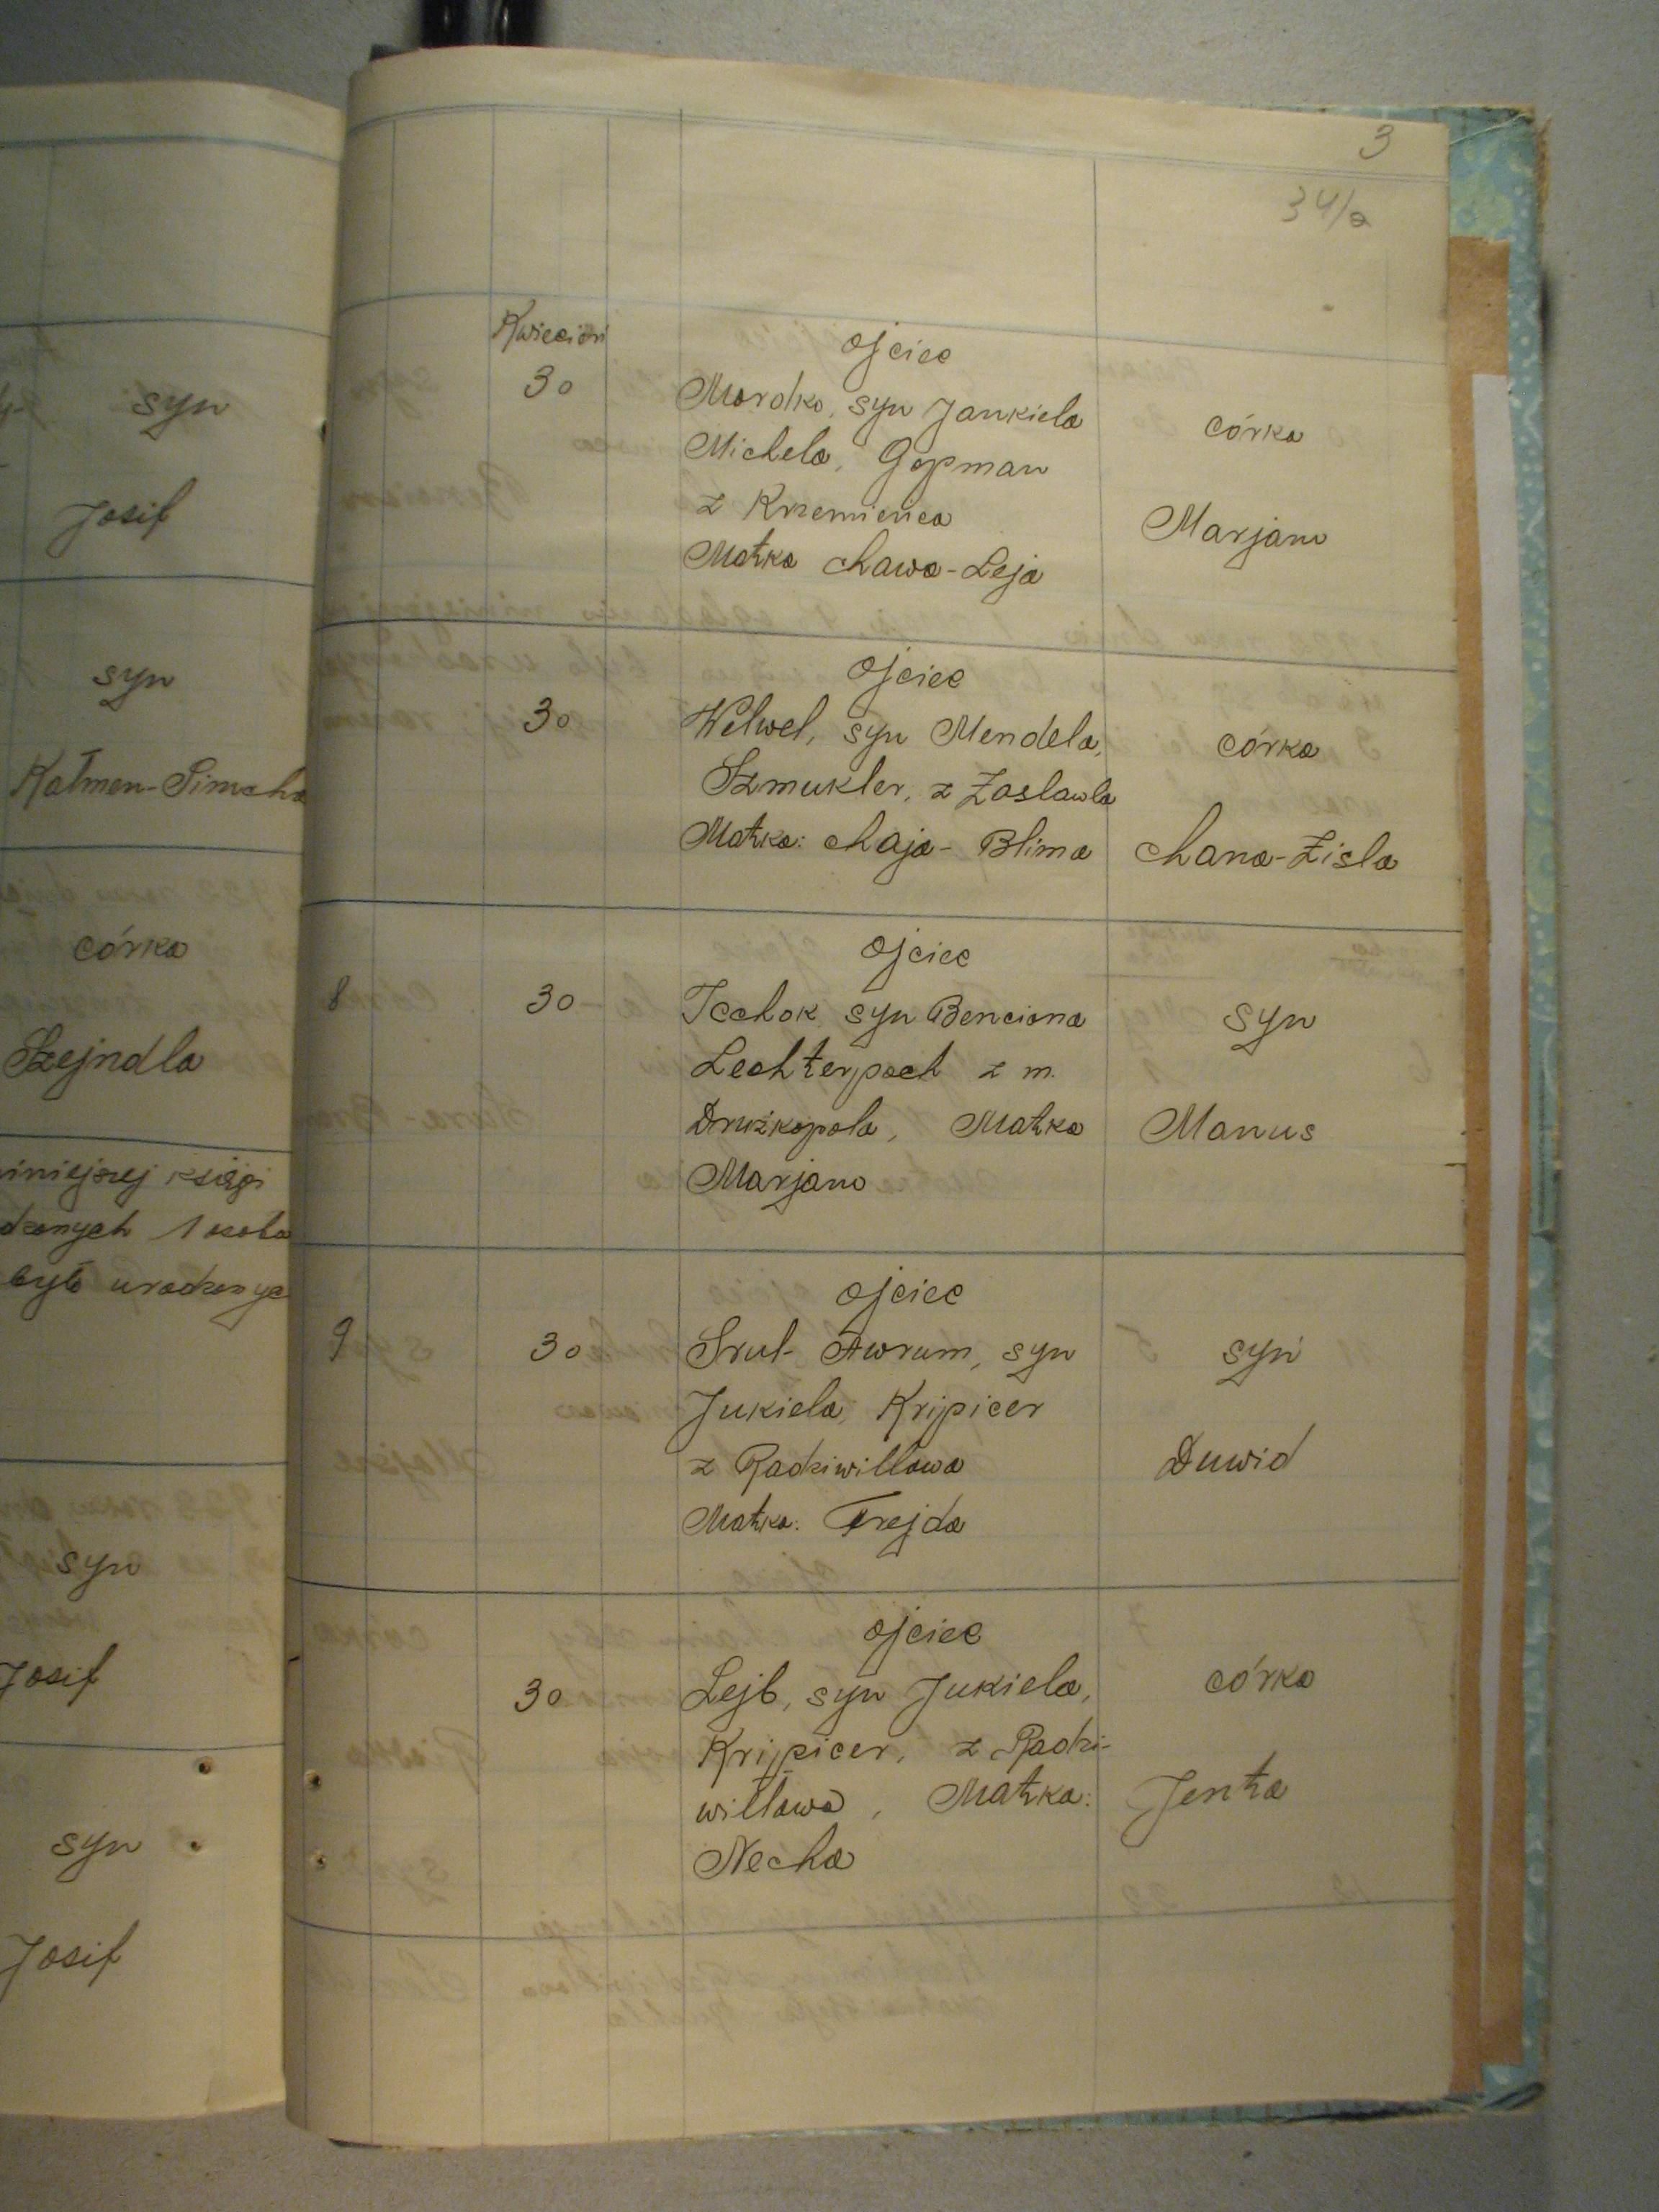 syn
Josif
syn
Kalmen-Simcha
córka
Szejndla
iniejszej księgi
dzonych 1 osoba
było urodzonyc
syn
Josif
syn
Josif
3
34/a
Kwiecień
ojciec
30 Mordko, syn Jankiela córka
Michela, Gopman
z Krzemieńca Marjam
Matka Chawa-Leja
ojciec
30 Welwel, syn Mendela, córka
Szmukler, z Zasławla
Matka: Chaja-Blima Chana-Zisla
ojciec
8 30 Icchok syn Benciona syn
Lechterpach z m.
Drużkopola, Matka Manus
Marjam
ojciec
9 30 Srul-Awrum, syn syn
Jukiela, Kripicer
z Radziwiłłowa Duwid
Matka: Frejda
ojciec
30 Lejb, syn Jukiela, córka
Kripicer, z Radzi-
wiłłowa, Matka: Jenta
Necha